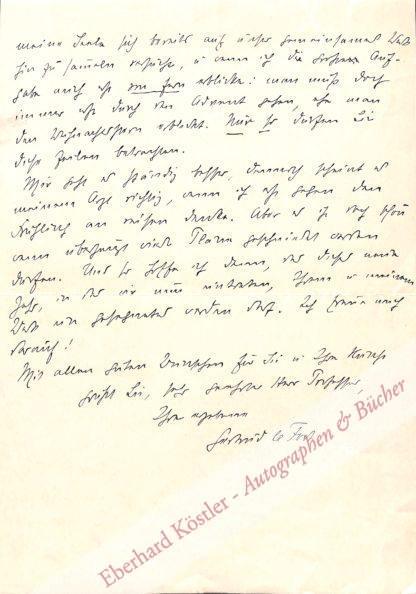 meine Seele sich bereits auf unser gemeinsames Werk
hin zu sammeln versucht, u. wenn ich die Aufgabe
auch erst von fern erblicke: man muß doch
immer erst durch den Advent gehen, ehe man
den Weihnachtsstern erblickt. Nur so dürfen Sie
diese Zeilen betrachten.
Mir geht es ständig besser, dennoch scheint es
meinem Arzt richtig, wenn ich erst gegen den
Frühling an reisen denke. Aber es ist doch schön
wenn überhaupt wieder Pläne geschmiedet werden
dürfen. Und so hoffe ich denn, daß dieses neue
Jahr, in das wir nun eintreten, Ihrem u. meinem
Werk ein gesegnetes werden darf. Ich freue mich
darauf!
Mit allen guten Wünschen für Sie u. Ihre Kunst
grüßt Sie, sehr geehrter Herr Professor,
Ihre ergebene
Gertrud le Fort
Eberhard Köstler - Autographen & Bücher